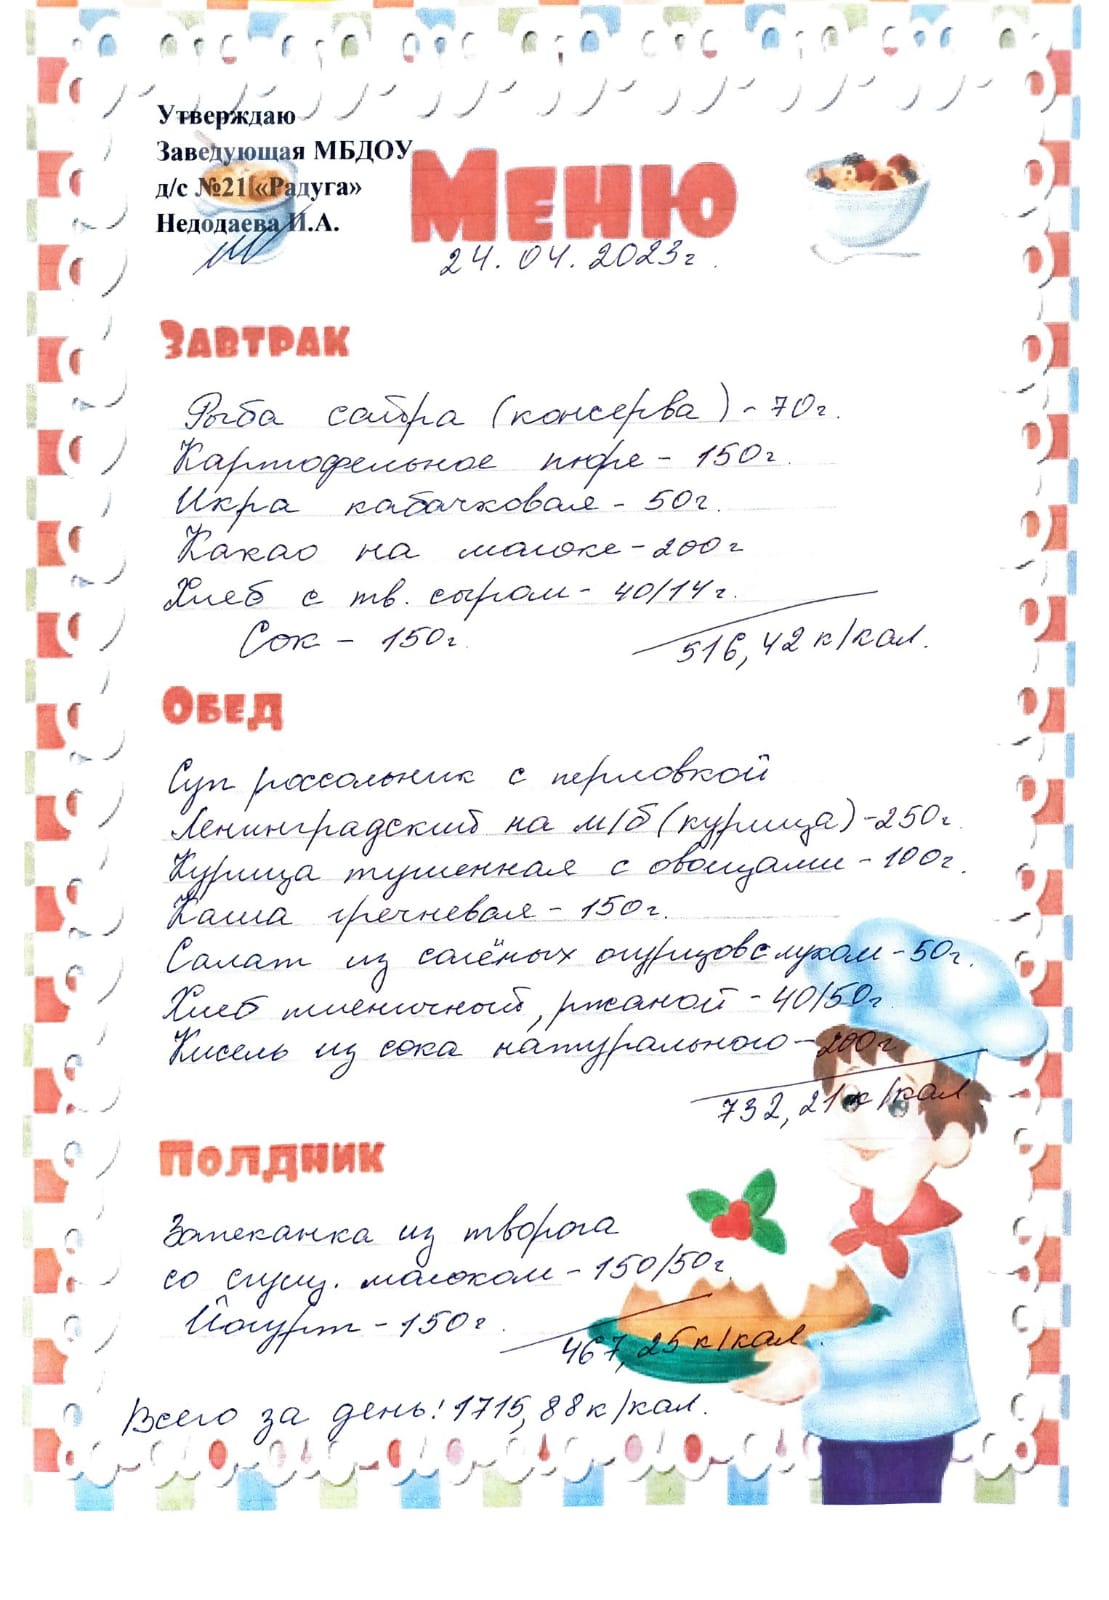 Утверждаю
Заведующая МБДОУ
д/с №21 «Радуга»
Недодаева И.А.
Меню
24.04.2023г.
Завтрак
Рыба сайра (консерва) - 70г.
Картофельное пюре - 150г.
Икра кабачковая - 50г.
Какао на молоке - 200г
Хлеб с тв. сыром - 40/14г.
Сок - 150г.
516,42 к/кал.
Обед
Суп рассольник с перловкой
Ленинградский на м/б (курица) - 250г.
Курица тушенная с овощами - 100г.
Каша гречневая - 150г.
Салат из солёных огурцов с луком - 50г.
Хлеб пшеничный, ржаной - 40/50г.
Кисель из сока натурального - 200г
732,21 к/кал
Полдник
Запеканка из творога
со сгущ. молоком - 150/50г.
Йогурт - 150г.
467,25 к/кал.
Всего за день: 1715,88 к/кал.